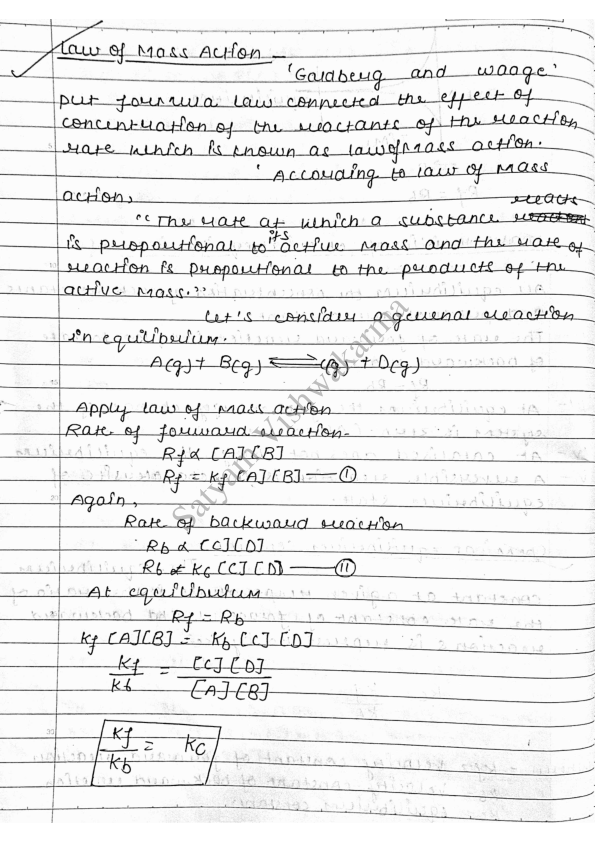 Law of Mass Action -
'Goldberg and waage'
put forwrwa law connected the effect of
concentration of the reactants of the reaction
rate which is known as lawofMass action.
' According to law of Mass
action,
"The rate at which a substance reacts
is proportional to its active mass and the rate of
reaction is proportional to the products of the
active Mass."
Let's consider a general reaction
in equilibrium.
A(g) + B(g) ⇌ C(g) + D(g)
Apply law of Mass action
Rate of forward reaction-
Rf ∝ [A][B]
Rf = Kf [A][B] — (I)
Again,
Rate of backward reaction
Rb ∝ [C][D]
Rb = Kb [C][D] — (II)
At equilibrium
Rf = Rb
Kf [A][B] = Kb [C][D]
Kf/Kb = [C][D]/[A][B]
Kf/Kb = Kc
Satyam Vishwakarma